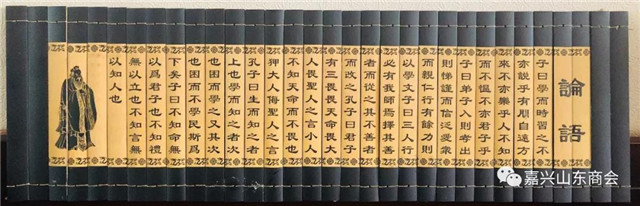 論語
子曰學而時習之不
亦說乎有朋自遠方
來不亦樂乎人不知
而不慍不亦君子乎
子曰弟子入則孝出
則悌謹而信泛愛衆
而親仁行有餘力則
以學文子曰三人行
必有我師焉擇其善
者而從之其不善者
而改之孔子曰君子
有三畏畏天命畏大
人畏聖人之言小人
不知天命而不畏也
狎大人侮聖人之言
孔子曰生而知之者
上也學而知之者次
也困而學之又其次
也困而不學民斯爲
下矣子曰不知命無
以爲君子也不知禮
無以立也不知言無
以知人也
嘉兴山东商会